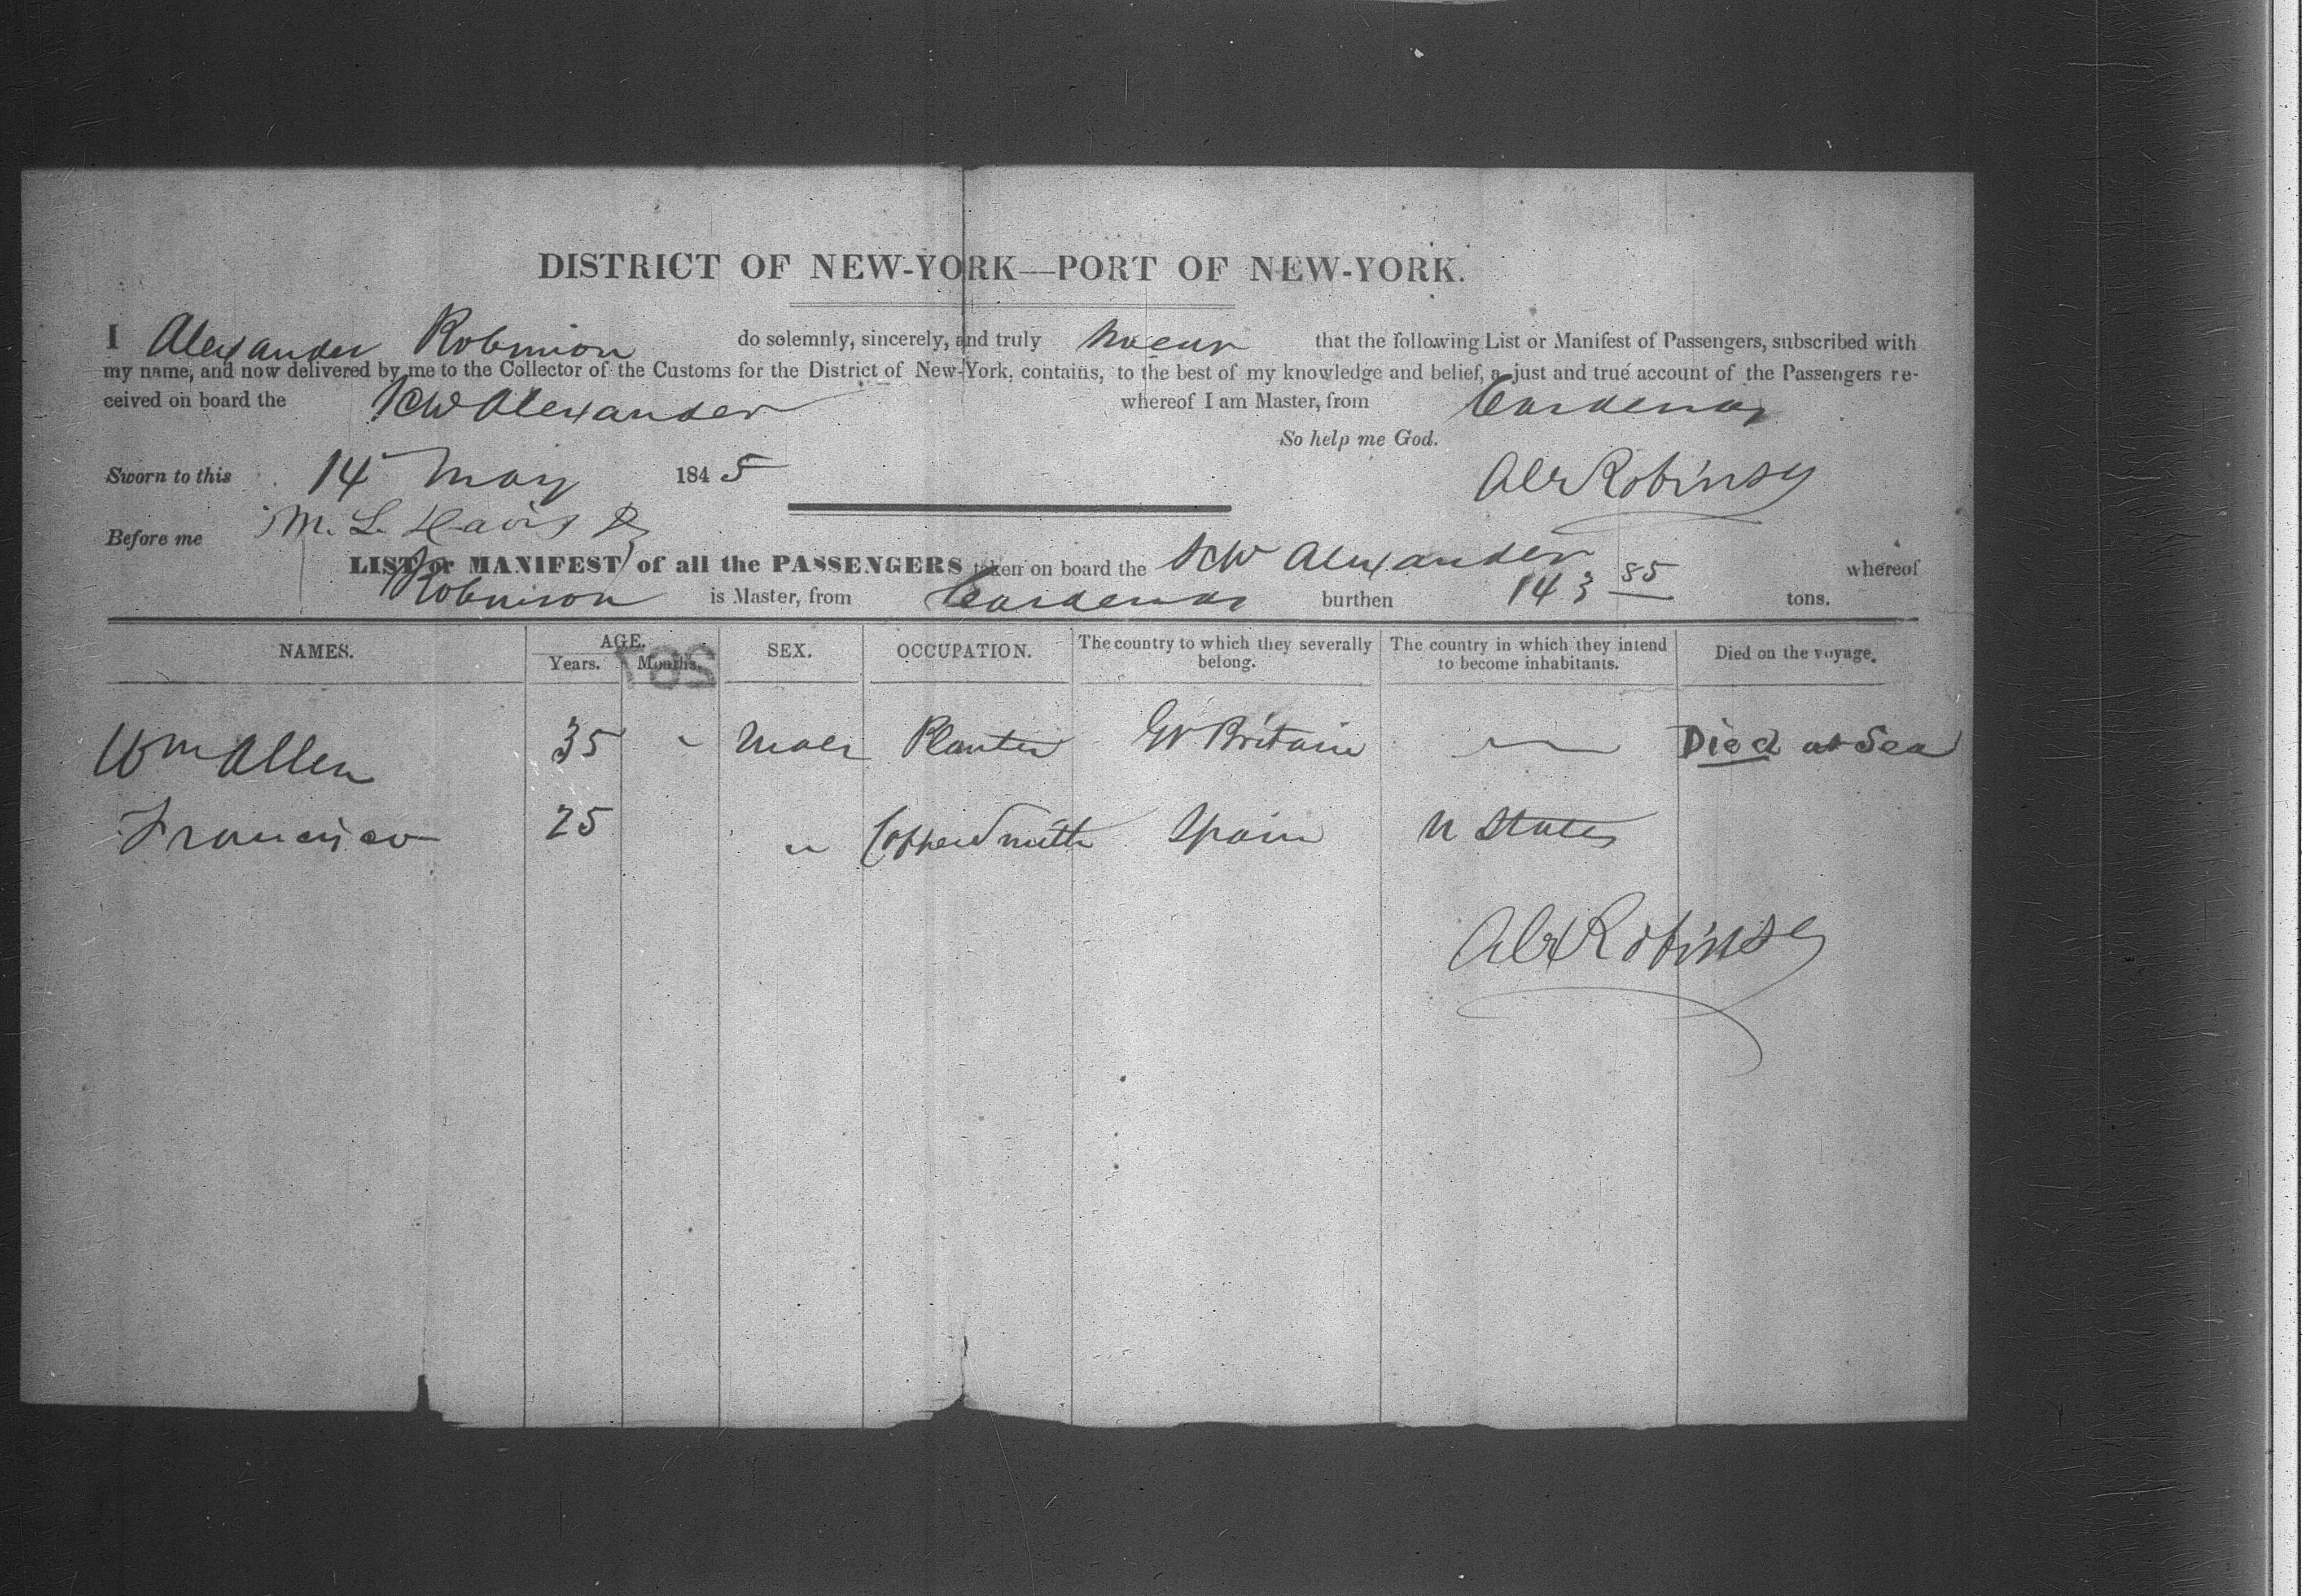 DISTRICT OF NEW-YORK—PORT OF NEW-YORK.
I Alexander Robinson do solemnly, sincerely, and truly swear that the following List or Manifest of Passengers, subscribed with
my name, and now delivered by me to the Collector of the Customs for the District of New-York, contains, to the best of my knowledge and belief, a just and true account of the Passengers re-
ceived on board the Schr Alexander whereof I am Master, from Cardenas
So help me God.
Sworn to this 14 May 1845 Alx Robinson
Before me M. L. Davis
LIST or MANIFEST of all the PASSENGERS taken on board the Schr Alexander whereof
Robinson is Master, from Cardenas burthen 143 85 tons.
NAMES. AGE. Years. Months. SEX. OCCUPATION. The country to which they severally belong. The country in which they intend to become inhabitants. Died on the voyage.
Wm Allen 35 - Male Planter Gr Britain — Died at Sea
Francisco 25 " Copper Smith Spain U States
Alx Robinson